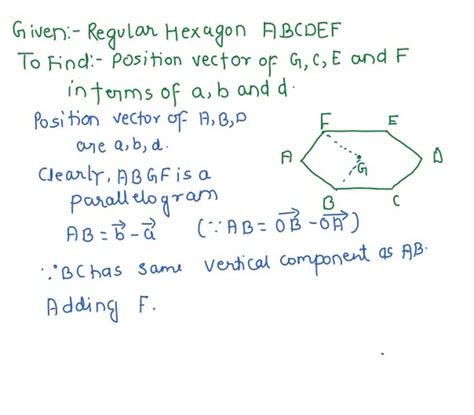 Given:- Regular Hexagon ABCDEF
To Find:- Position vector of G, C, E and F
in terms of a, b and d.
Position vector of A, B, D
are a, b, d.
Clearly, ABGF is a
parallelogram
AB = b⃗ - a⃗ (∵ AB = OB⃗ - OA⃗)
∵ BC has same vertical component as AB.
Adding F.
F E
A G D
B C